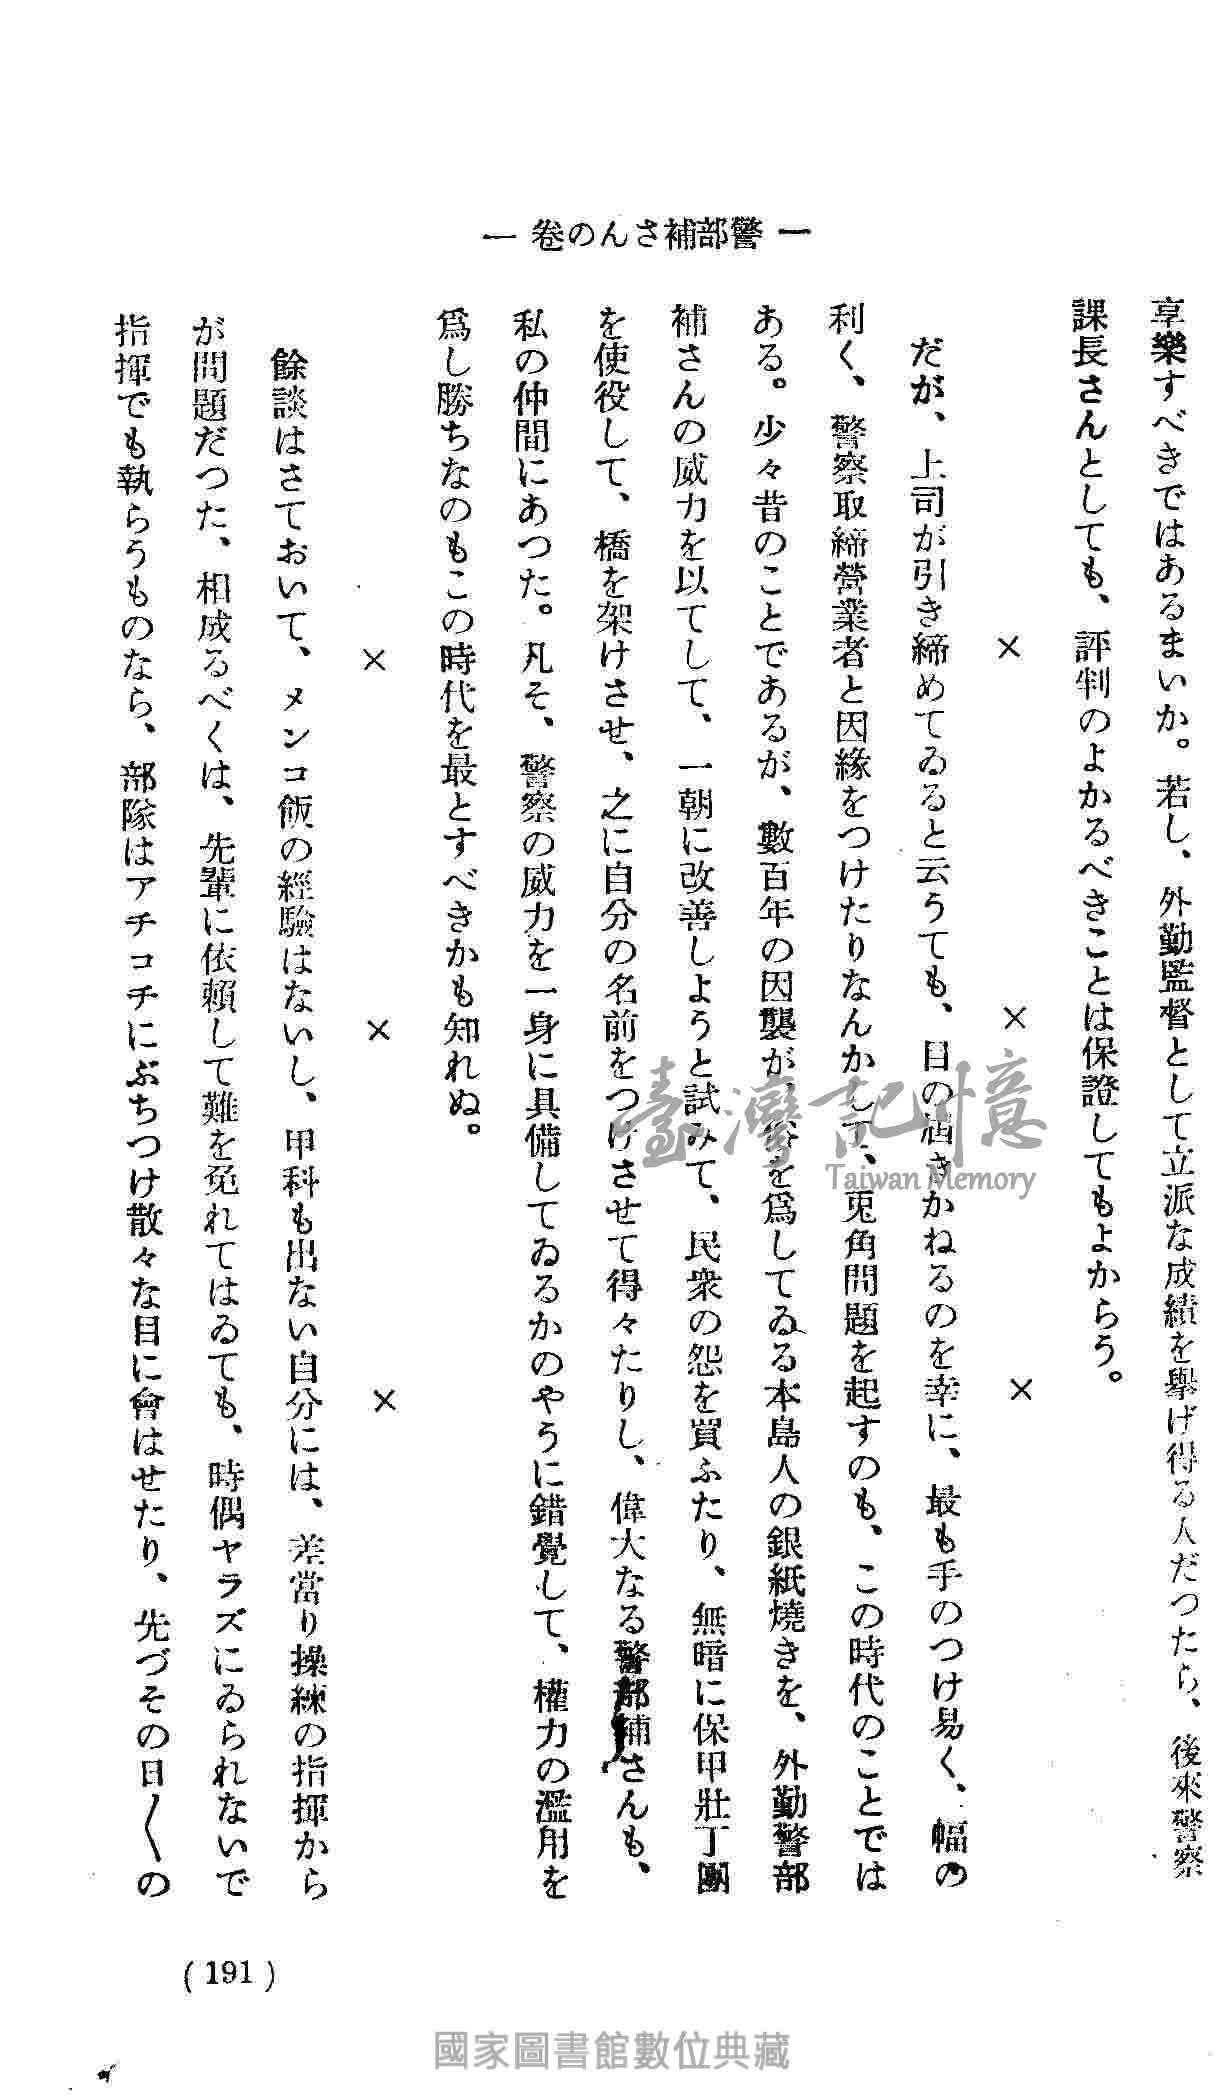 ― 警部補さんの卷 ―
享樂すべきではあるまいか。若し、外勤監督として立派な成績を擧げ得る人だつたら、後來警察
課長さんとしても、評判のよかるべきことは保證してもよからう。
× × ×
だが、上司が引き締めてゐると云うても、目の届きかねるのを幸に、最も手のつけ易く、幅の
利く、警察取締營業者と因緣をつけたりなんかして、兎角問題を起すのも、この時代のことでは
ある。少々昔のことであるが、數百年の因襲が、俗を爲してゐる本島人の銀紙燒きを、外勤警部
補さんの威力を以てして、一朝に改善しようと試みて、民衆の怨を買ふたり、無暗に保甲壯丁團
を使役して、橋を架けさせ、之に自分の名前をつけさせて得々たりし、偉大なる警部補さんも、
私の仲間にあつた。凡そ、警察の威力を一身に具備してゐるかのやうに錯覺して、權力の濫用を
爲し勝ちなのもこの時代を最とすべきかも知れぬ。
× × ×
餘談はさておいて、メンコ飯の經驗はないし、甲科も出ない自分には、差當り操練の指揮から
が問題だつた、相成るべくは、先輩に依賴して難を免れてはゐても、時偶ヤラズにゐられないで
指揮でも執らうものなら、部隊はアチコチにぶちつけ散々な目に會はせたり、先づその日〱の
(191)
臺灣記憶
Taiwan Memory
國家圖書館數位典藏